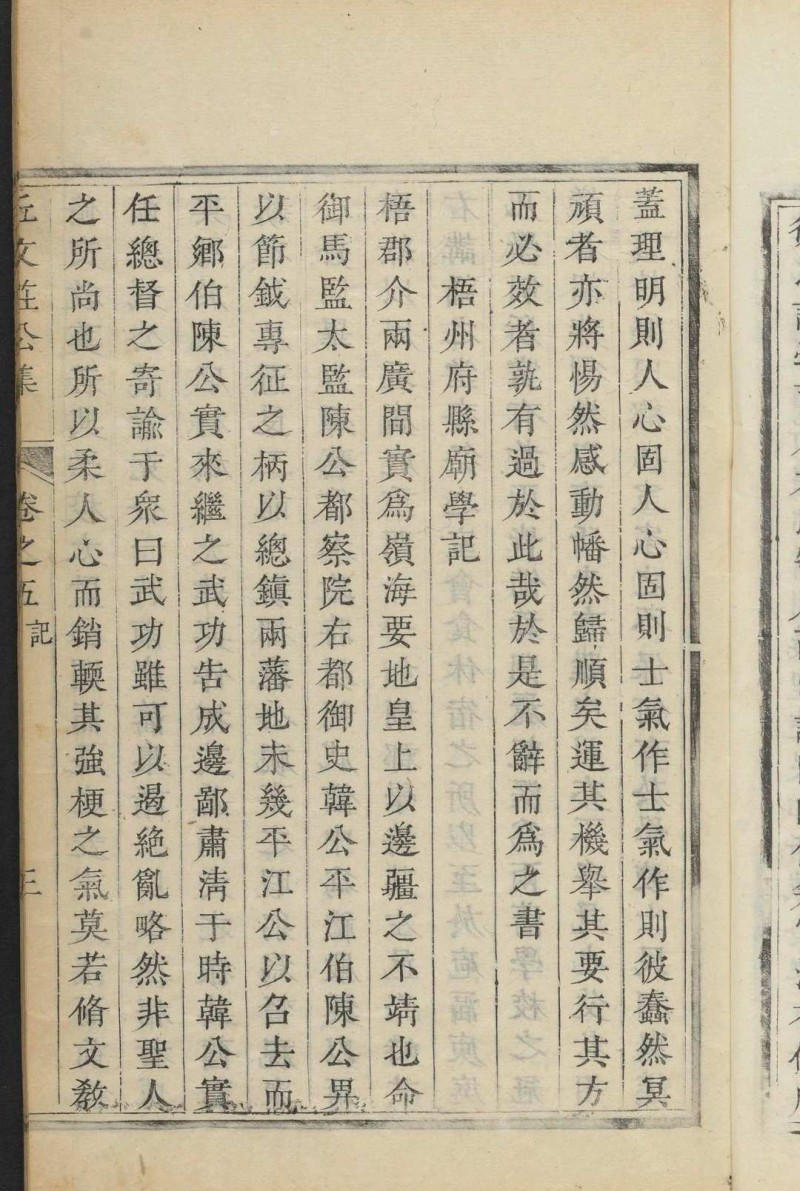 蓋理明則人心固人心固則士氣作士氣作則彼蠢然冥
頑者亦將惕然感動幡然歸順矣運其機舉其要行其方
而必效者孰有過於此哉於是不辭而爲之書
梧州府縣廟學記
梧郡介兩廣間實爲嶺海要地皇上以邊疆之不靖也命
御馬監太監陳公都察院右都御史韓公平江伯陳公畀
以節鉞專征之柄以總鎮兩藩地未幾平江公以召去而
平鄉伯陳公實來繼之武功告成邊鄙肅清于時韓公實
任總督之寄諭于衆曰武功雖可以遏絶亂略然非聖人
之所尚也所以柔人心而銷輭其強梗之氣莫若脩文敎
丘文莊公集 卷之五 記